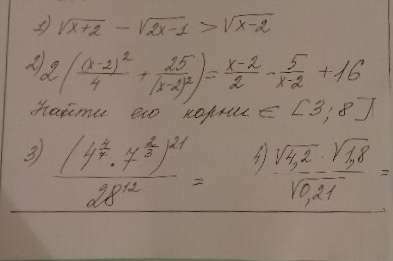 1) √x+2 − √2x-1 > √x-2
2) 2((x-2)²/4 + 25/(x-2)²) = x-2/2 − 5/x-2 + 16
Найти его корни ∈ [3;8]
3) (4^4/7 · 7^2/3)^21 / 28^12 =
4) √4,2 · √1,8 / √0,21 =